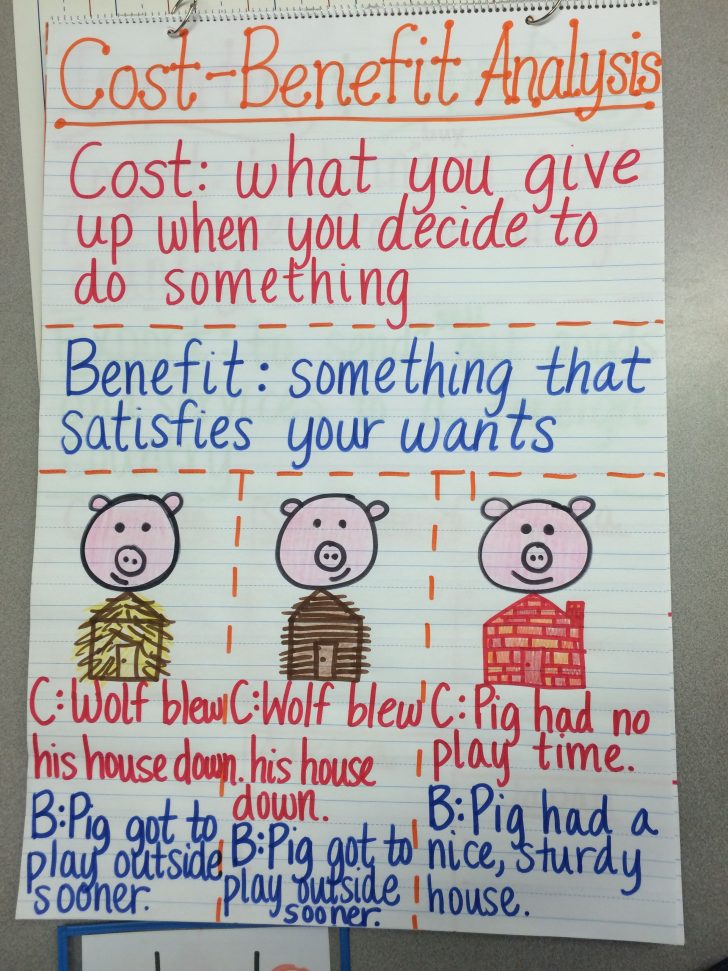 Cost-Benefit Analysis
Cost: what you give
up when you decide to
do something
Benefit: something that
satisfies your wants
C: Wolf blew
his house down.
B: Pig got to
play outside
sooner.
C: Wolf blew
his house
down.
B: Pig got to
play outside
sooner.
C: Pig had no
play time.
B: Pig had a
nice, sturdy
house.